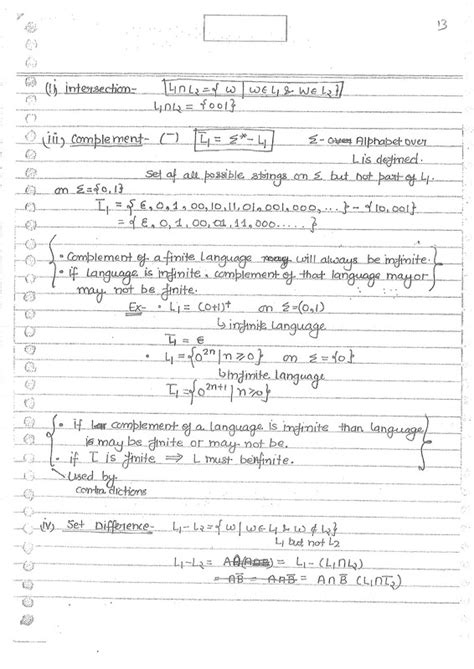 13
(ii) intersection- L₁∩L₂ = { w | w∈L₁ & w∈L₂ }
L₁∩L₂ = {001}
(iii) Complement- (¯) L̅₁ = Σ* - L₁ Σ- Alphabet over
L is defined.
Set of all possible strings on Σ but not part of L₁.
on Σ={0,1}
L̅₁ = { ϵ, 0, 1, 00, 10, 11, 01, 001, 000, ... } - {10, 001}
= { ϵ, 0, 1, 00, 01, 11, 000 ..... }
• Complement of a finite language will always be infinite.
• if Language is infinite, complement of that language may or
may not be finite.
Ex- • L₁ = (0+1)⁺ on Σ=(0,1)
↳ infinite Language
L̅₁ = ϵ
• L₁ = {0²ⁿ | n≥0} on Σ = {0}
↳ infinite Language
L̅₁ = {0²ⁿ⁺¹ | n≥0}
• if complement of a language is infinite than language
may be finite or may not be.
• if L̅ is finite ⇒ L must be infinite.
Used by
contradictions
iv) Set Difference- L₁-L₂ = { w | w∈L₁ & w∉L₂}
L₁ but not L₂
L₁-L₂ = = L₁ - (L₁∩L₂)
= AB̅ = A∩B̅ = A∩B̅ (L₁∩L̅₂)